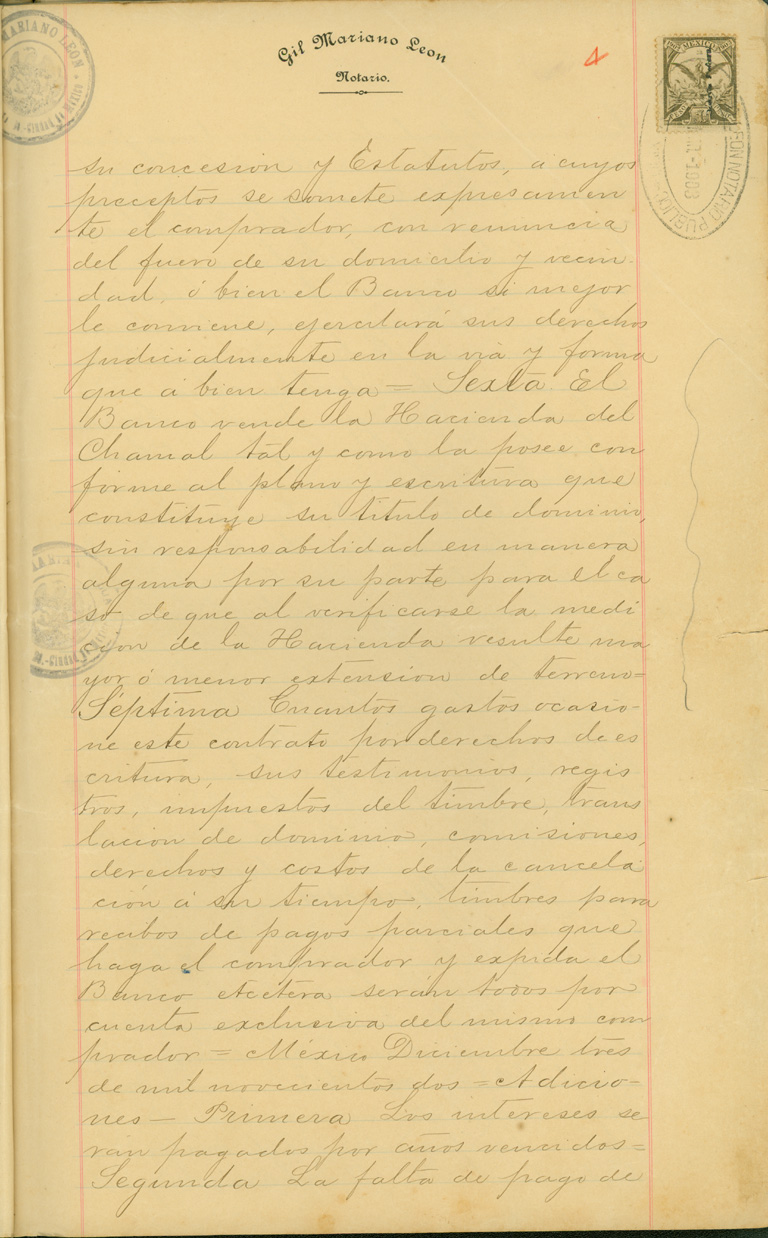 Gil Mariano Leon
Notario.
4
su concesión y Estatutos, a cuyos
preceptos se somete expresamen
te el comprador, con renuncia
del fuero de su domicilio y vecin-
dad, ó bien el Banco si mejor
le conviene, ejercitará sus derechos
judicialmente en la via y forma
que á bien tenga = Sexta. El
Banco vende la Hacienda del
Chamal tal y como la posee con
forme al plano y escritura que
constituye su titulo de dominio,
sin responsabilidad en manera
alguna por su parte para el ca
so de que al verificarse la medi
ción de la Hacienda resulte ma
yor ó menor extensión de terreno=
Séptima Cuantos gastos ocasio-
ne este contrato por derechos de es
critura, sus testimonios, regis
tros, impuestos del timbre, trans
lación de dominio, comisiones,
derechos y costos de la cancela
ción á su tiempo, timbres para
recibos de pagos parciales que
haga el comprador y expida el
Banco etcétera serán todos por
cuenta exclusiva del mismo com
prador = México Diciembre tres
de mil novecientos dos = Adicio-
nes — Primera Los intereses se
rán pagados por años vencidos=
Segunda La falta de pago de